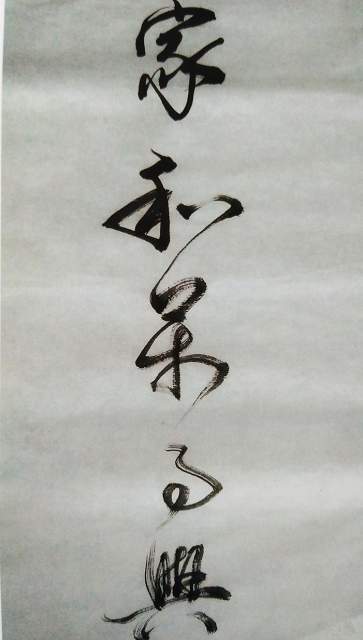 家和万事興